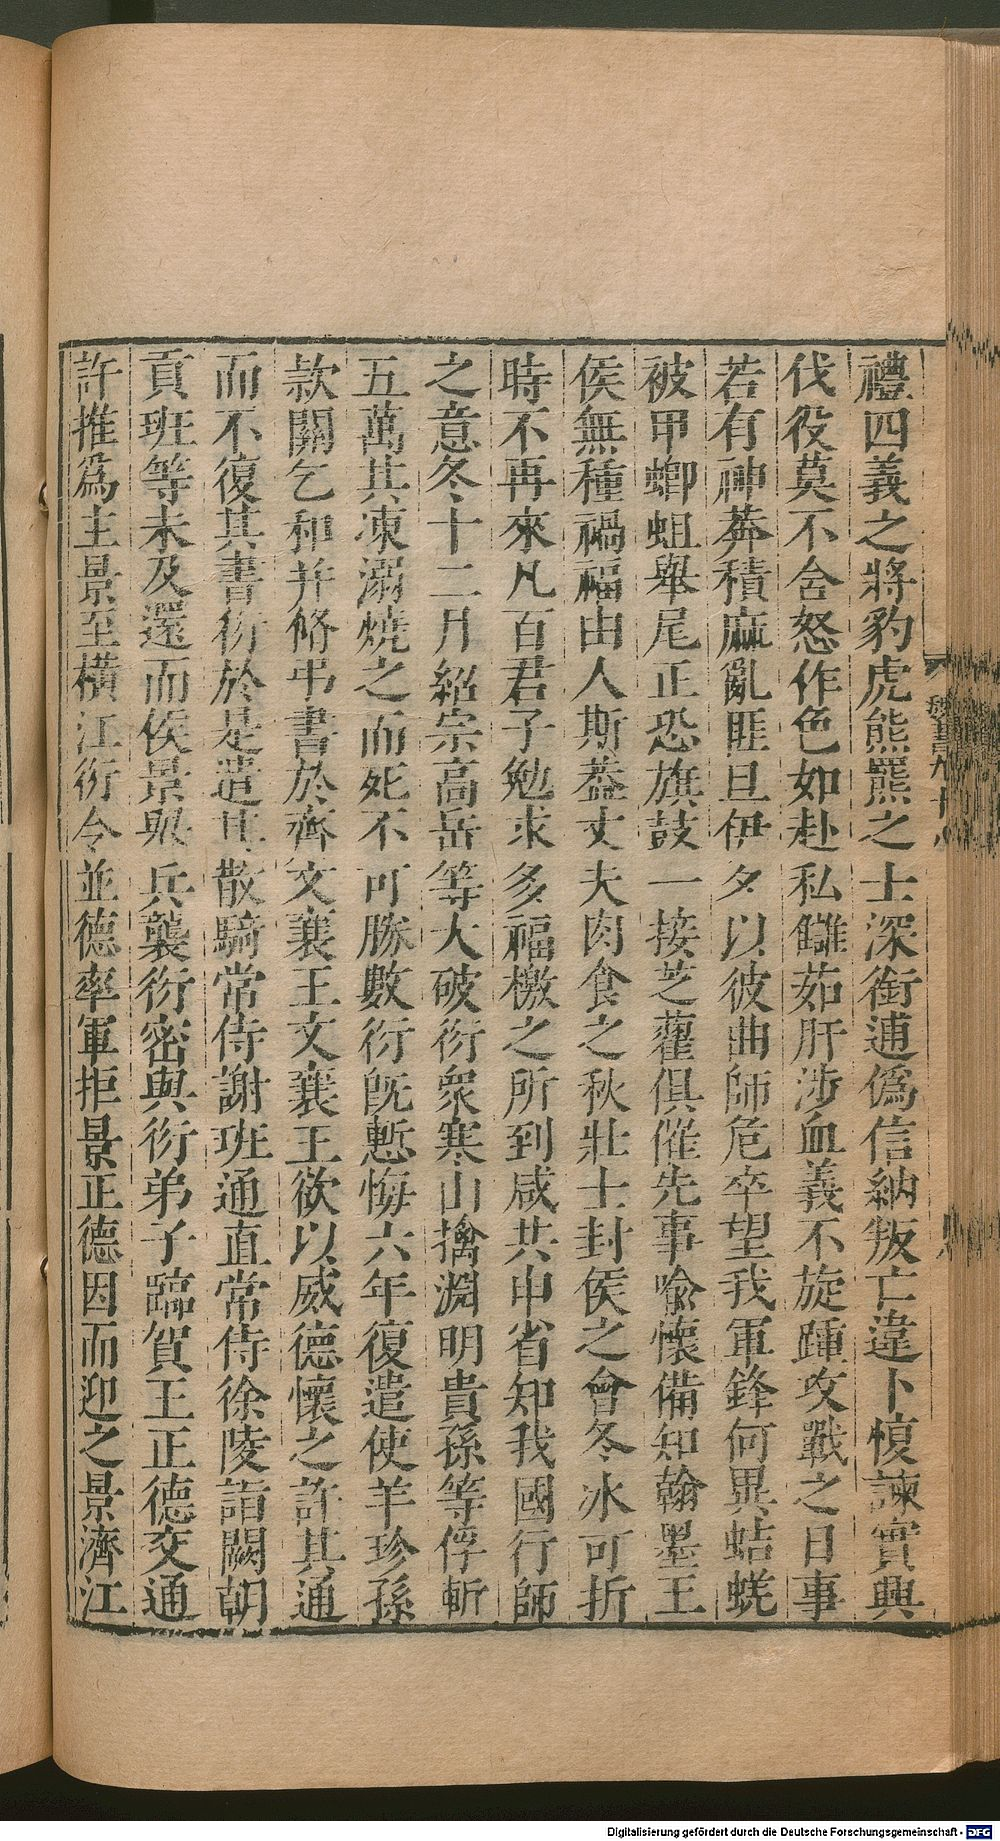 禮四義之將豹虎熊羆之士深銜逋僞信納叛亡違卜愎諫實興
伐役莫不含怒作色如赴私讎茹肝涉血義不旋踵攻戰之日事
若有神莽積麻亂匪旦伊夕以彼曲師危卒望我軍鋒何異蛣蜣
被甲蝍蛆舉尾正恐旗鼓一接芝藿俱催先事喻懷備知翰墨王
侯無種禍福由人斯葢丈夫肉食之秋壯士封侯之會冬氷可折
時不再來凡百君子勉求多福檄之所到咸共申省知我國行師
之意冬十二月紹宗高岳等大破衍衆寒山擒淵明貴孫等俘斬
五萬其凍溺燒之而死不可勝數衍旣慙悔六年復遣使羊珍孫
款關乞和并脩弔書於齊文襄王文襄王欲以威德懷之許其通
而不復其書衍於是遣其散騎常侍謝班通直常侍徐陵詣闕朝
貢班等未及還而侯景舉兵襲衍密與衍弟子臨賀王正德交通
許推爲主景至橫江衍令並德率軍拒景正德因而迎之景濟江
Digitalisierung gefördert durch die Deutsche Forschungsgemeinschaft - DFG